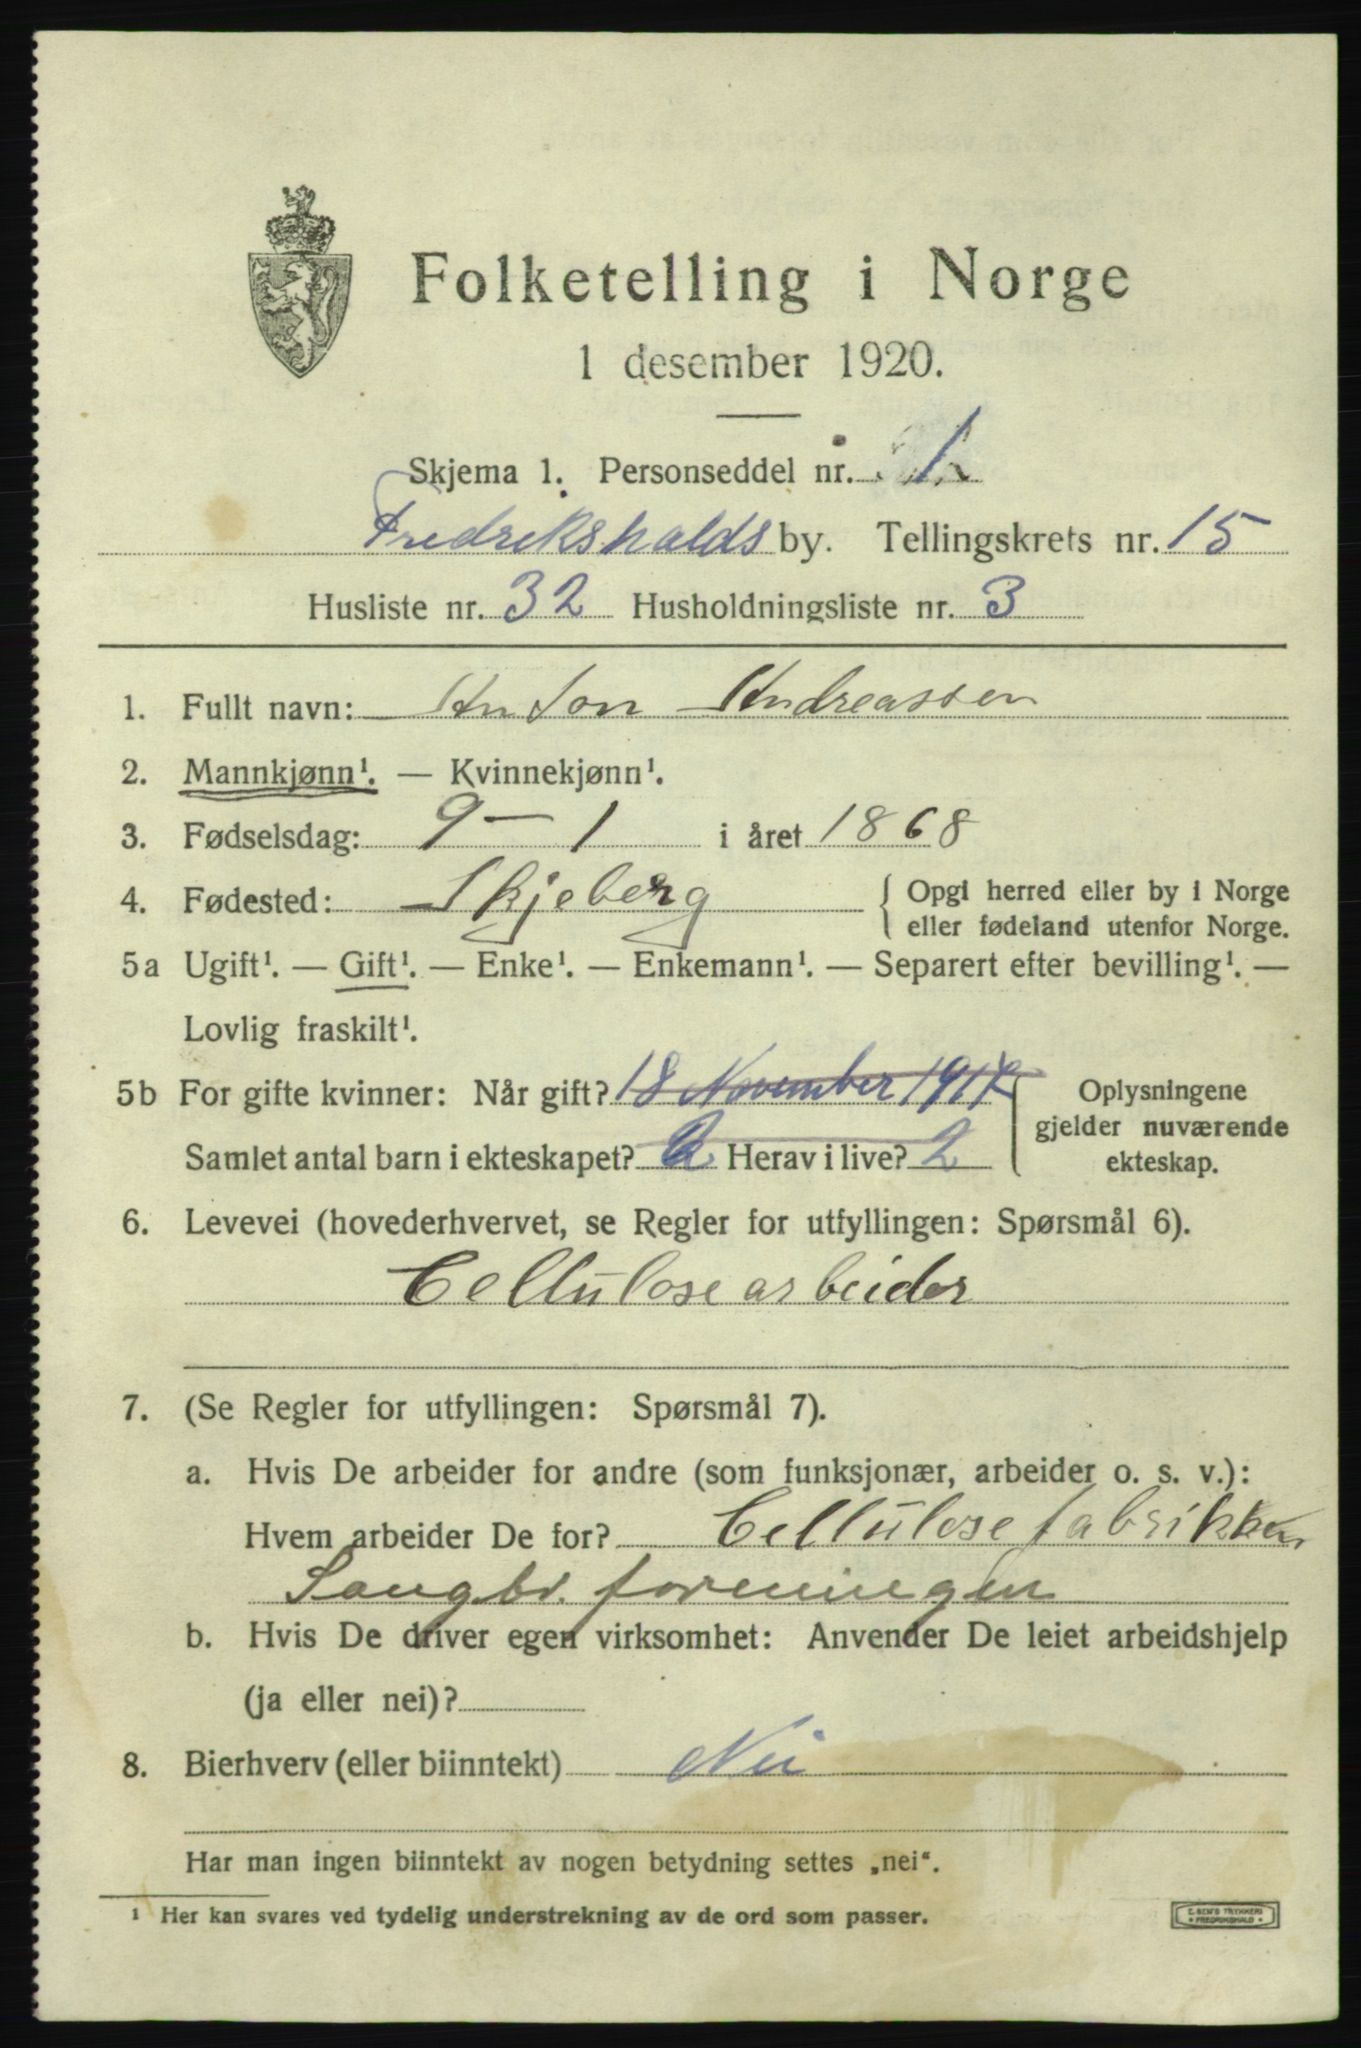 Folketelling i Norge
1 desember 1920.
Skjema 1. Personseddel nr. 1
Fredrikshalds by. Tellingskrets nr. 15
Husliste nr. 32 Husholdningsliste nr. 3
1. Fullt navn: Anton Andreassen
2. Mannkjønn¹. — Kvinnekjønn¹.
3. Fødselsdag: 9 — 1 i året 1868
4. Fødested: Skjeberg { Opgi herred eller by i Norge
eller fødeland utenfor Norge.
5a Ugift¹. — Gift¹. — Enke¹. — Enkemann¹. — Separert efter bevilling¹. —
Lovlig fraskilt¹.
5b For gifte kvinner: Når gift? 18 November Oplysningene
gjelder nuværende
Samlet antal barn i ekteskapet? 2 Herav i live? 2 ekteskap.
6. Levevei (hovederhvervet, se Regler for utfyllingen: Spørsmål 6).
Cellulosearbeider
7. (Se Regler for utfyllingen: Spørsmål 7).
a. Hvis De arbeider for andre (som funksjonær, arbeider o. s. v.):
Hvem arbeider De for? Cellulosefabrikken
Saugbr. foreningen
b. Hvis De driver egen virksomhet: Anvender De leiet arbeidshjelp
(ja eller nei)?
8. Bierhverv (eller biinntekt) Nei
Har man ingen biinntekt av nogen betydning settes „nei“.
¹ Her kan svares ved tydelig understrekning av de ord som passer.
E. SEM'S TRYKKERI
• FREDRIKSHALD •